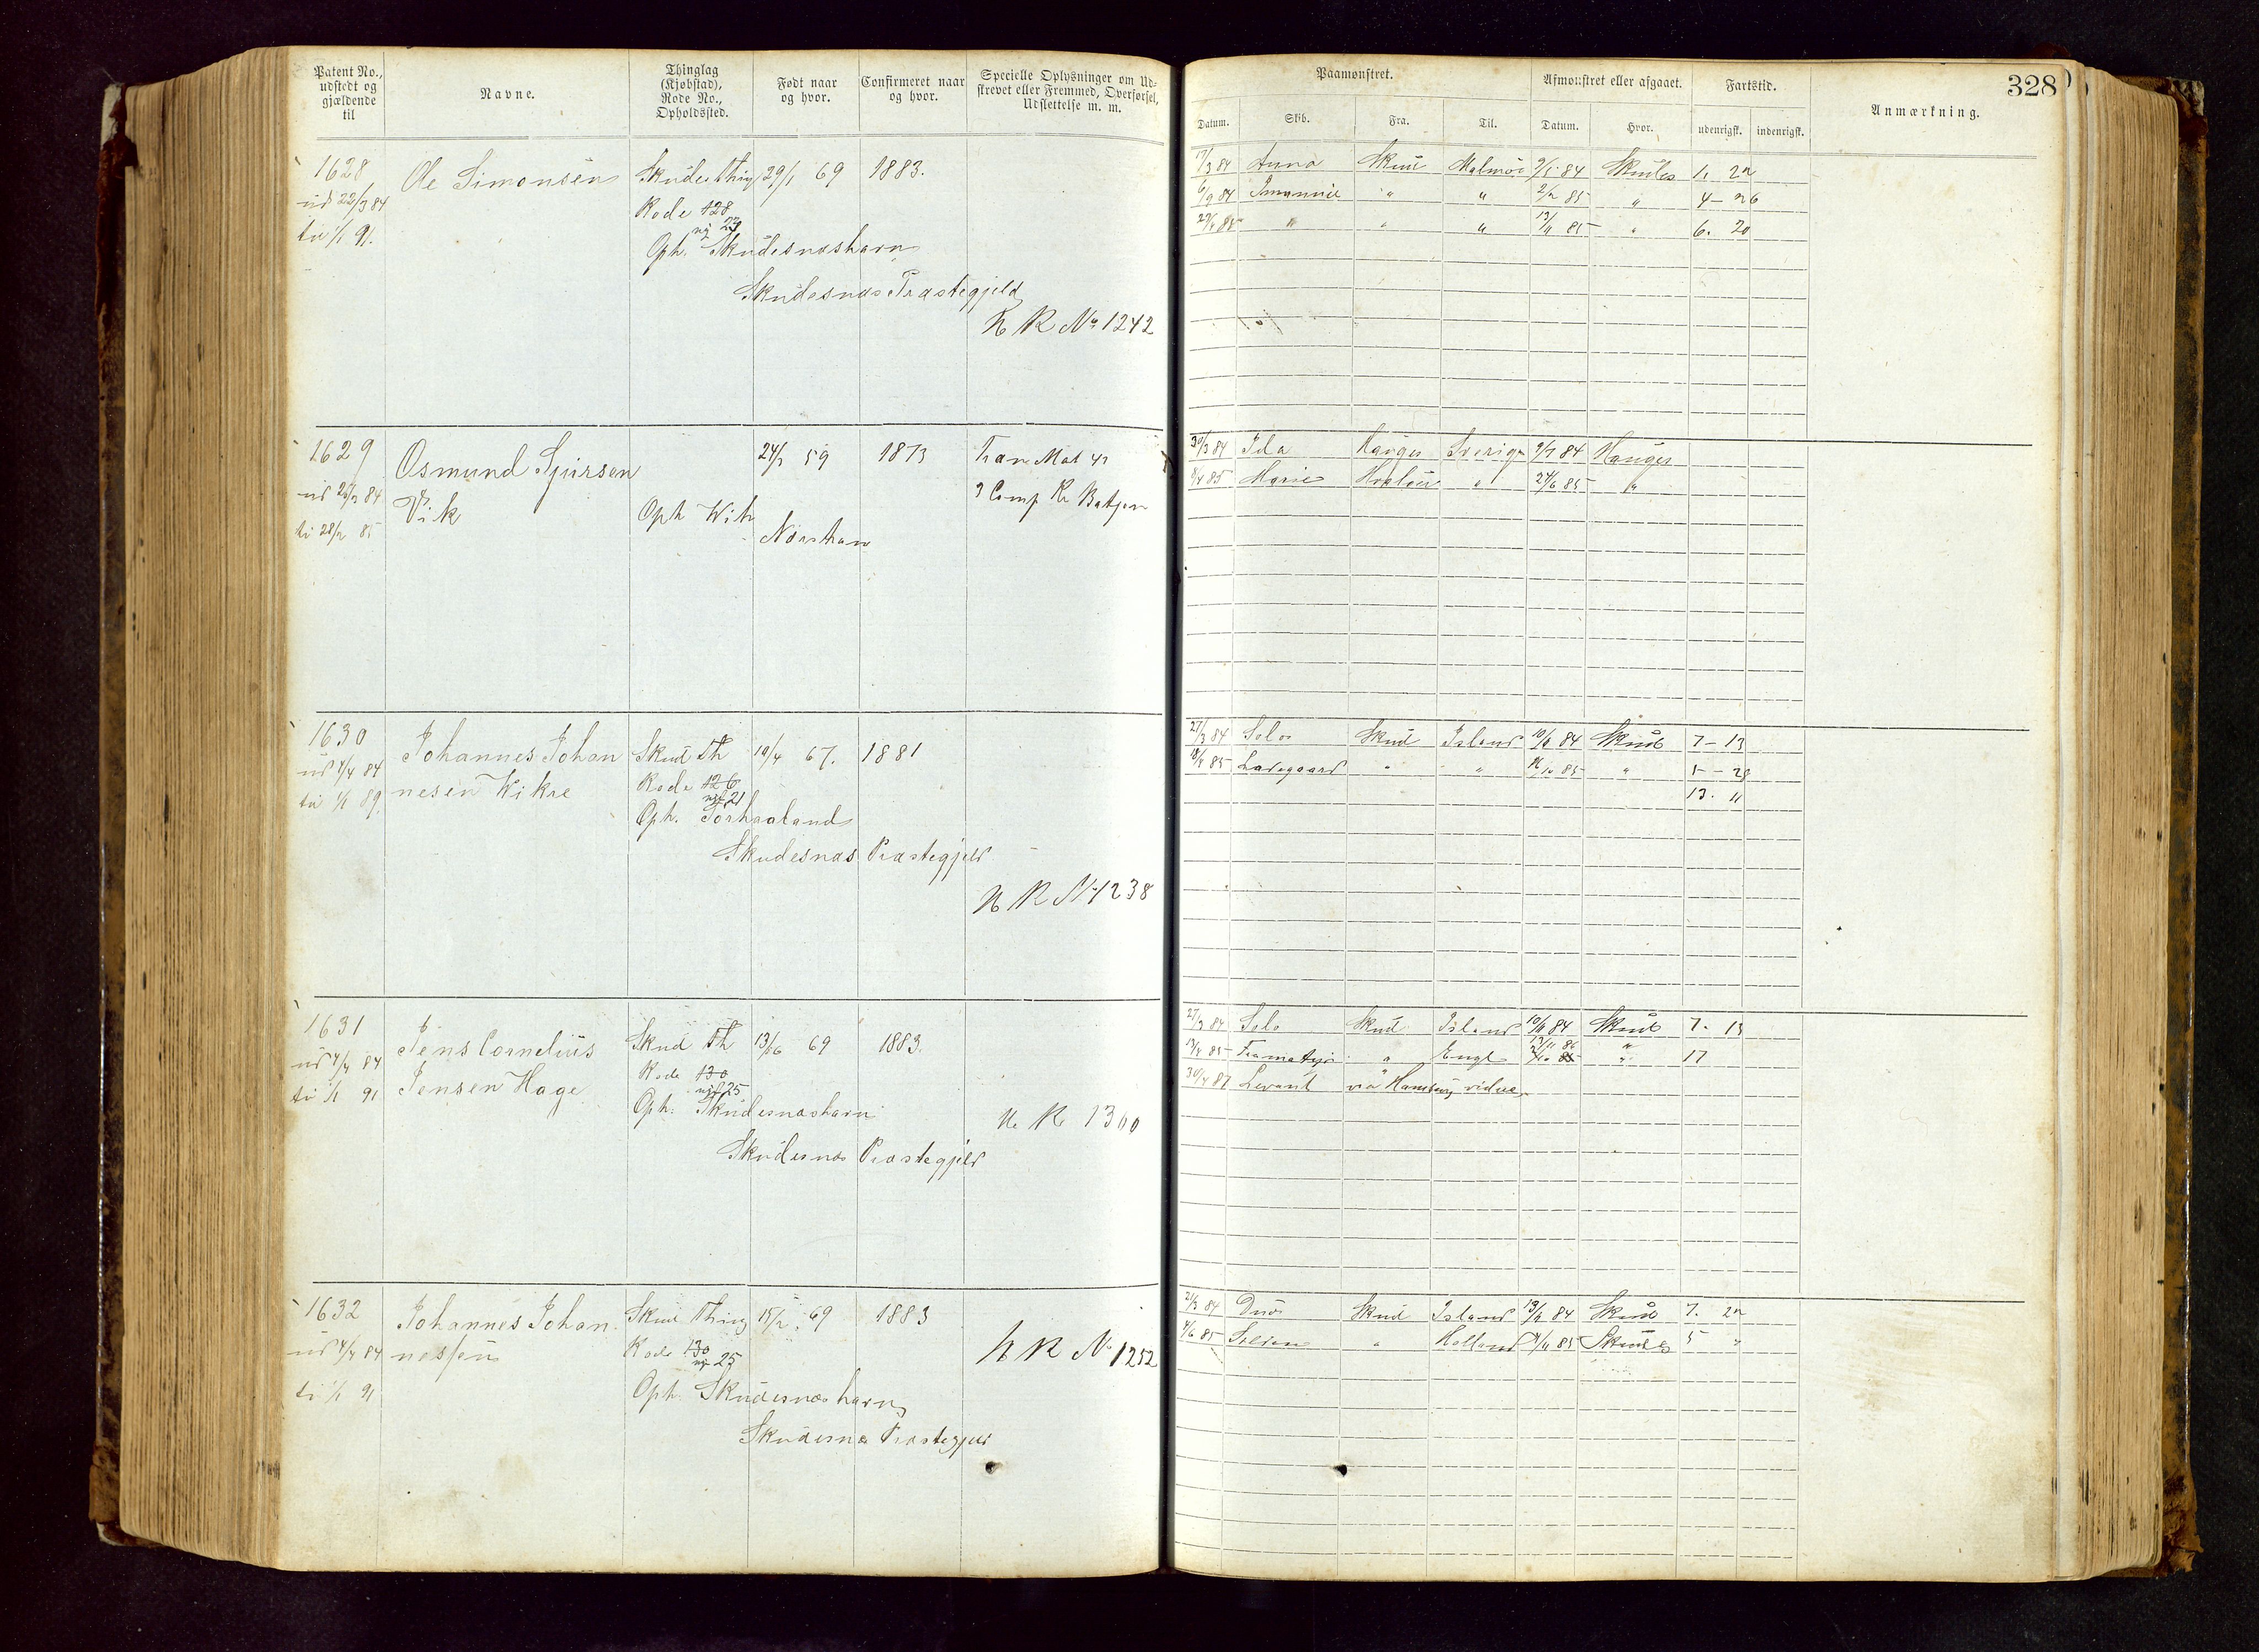 Patent No., udstedt og gjældende til
Navne.
Thinglag (Kjøbstad), Rode No., Opholdssted.
Født naar og hvor.
Confirmeret naar og hvor.
Specielle Oplysninger om Udskrevet eller Fremmed, Overførsel, Udslettelse m. m.
Paamønstret.
Afmønstret eller afgaaet.
Fartstid.
Anmærkning.
328
Datum.
Skib.
Fra.
Til.
Datum.
Hvor.
udenrigsk.
indenrigsk.
1628
ud 22/3 84
til 1/1 91.
Ole Simonsen
Skudes Thing 29/1 69 1883.
Rode 128
ny 23
Oph. Skudesnæshavn
Skudesnæs Præstegjeld
No 1242
17/3 84 Anna Skud Malmøe 9/5 84 Skudes 1. 22
6/9 84 " " 2/2 85 " 4 - 26
" " " 13/11 85 " 6. 20
1629
84
28/2 85
Osmund Sjursen
Vik
24/3 59 1873
Oph Wik
3 Comp
30/3 84 Ida Hauges Sverige 9/7 84 Hauges
8/4 85 Marie " 24/6 85 "
1630
ud 4/4 84
til 1/1 89.
Johannes Johan
nesen Wikre
Skud Th 19/4 67. 1881
Rode 126
ny 21
Oph. Torhaaland
Skudesnæs Præstegjeld
No 1238
27/3 84 Solo Skud Island 10/11 84 Skud 7 - 13
18/4 85 Ladegaard " " 85 " 5 - 28
13. 11
1631
ud 4/4 84
til 1/1 91
Jens Cornelius
Jensen Hage
Skud Th 13/6 69 1883.
Rode 130
ny 25
Oph. Skudesnæshavn
Skudesnæs Præstegjeld
1300
27/3 84 Solo Skud Island 10/11 84 Skud 7. 13
13/4 85 " Engl " 17
30/4 87 Levant via Hamburg videre
1632
ud 4/4 84
til 1/1 91
Johannes Johan
nessen
Skud Thing 15/2 69 1883
Rode 130
ny 25
Oph. Skudesnæshavn
Skudesnæs Præstegjeld
No 1252
21/3 84 Duo Skud Island 13/11 84 Skud 7. 22
4/6 85 " Holland 85 Skudes 5 "